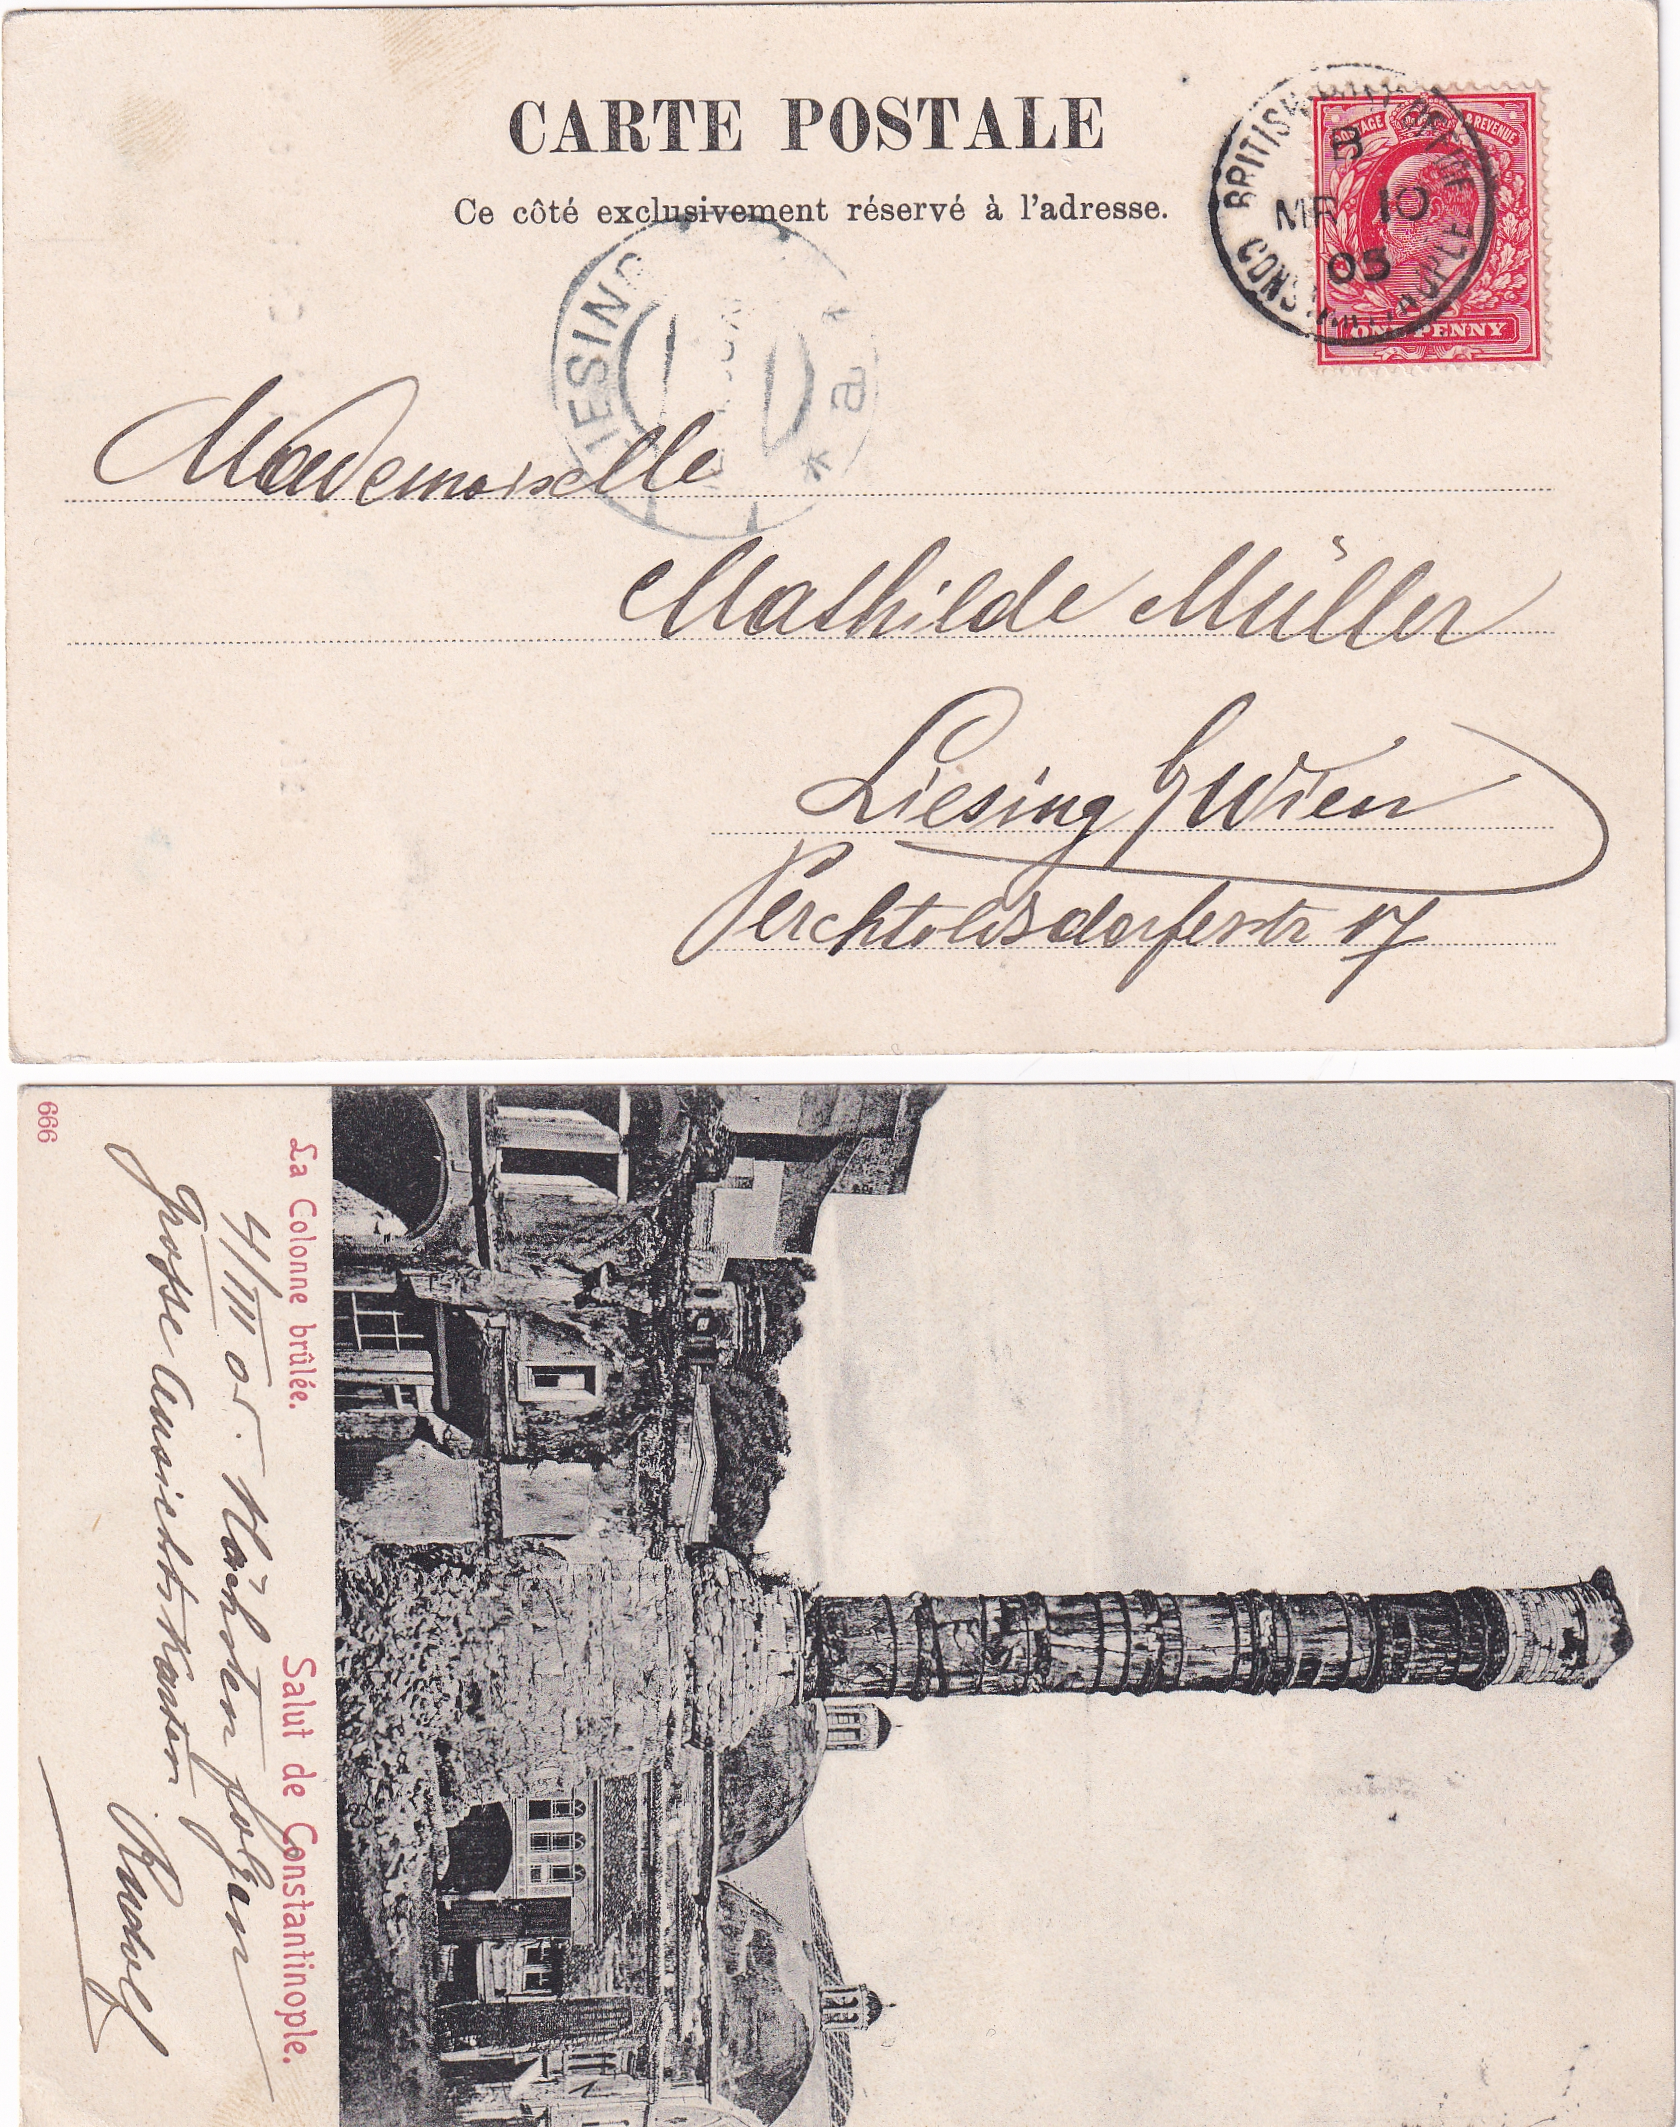 CARTE POSTALE
Ce côté exclusivement réservé à l'adresse.
BRITISH POST OFFICE
B
MR 10
05
CONSTANTINOPLE
POSTAGE & REVENUE
ONE PENNY
LIESING
* a *
Mademoiselle
Mathilde Müller
Liesing b/Wien
Perchtoldsdorferstr 17
La Colonne brûlée.
Salut de Constantinople.
4/III 05. Nächsten folgen
Grosse Ansichtskarten
Rudolf
666